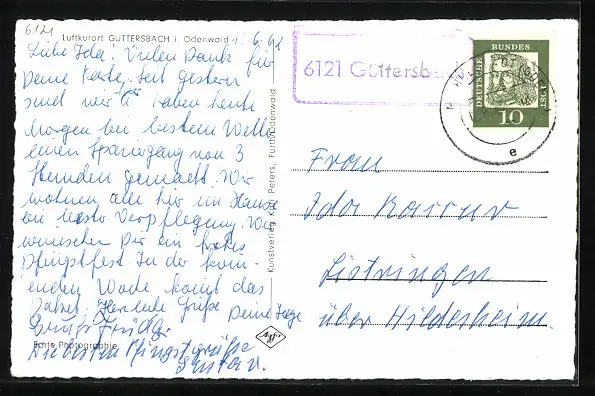 6121
Luftkurort GÜTTERSBACH i. Odenwald
6. 61
Liebe Ida! Vielen Dank für
Deine Karte, seit gestern
sind wir haben heute
Morgen bei bestem Wetter
einen Spaziergang von 3
Stunden gemacht. Wir
wohnen alle hier im Hause
bei bester Verpflegung. Wir
wünschen Dir ein frohes
Pfingstfest. In der kom-
menden Woche kommt das
Paket. Herzliche Grüße Deine
Echte Photographie
Liebsten Pfingstgrüße
Gustav.
Kunstverlag Karl Peters, Fürth/Odenwald
6121 Güttersbach
DEUTSCHE BUNDESPOST
10
e
Frau
Ida
Listringen
über Hildesheim.